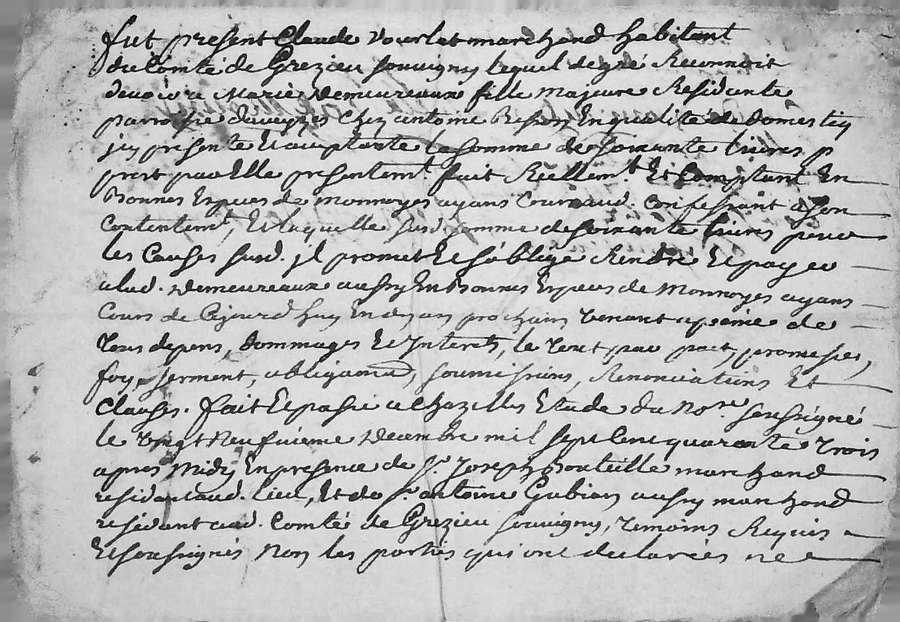 fut present Claude Vourlat marchand habitant
du Comté de Grezieu souvigny lequel de gré Reconnoit
devoir a Marie Demeureaux fille majeure Residante
parroisse chez antoine En qualité de Domestiq
jcy presente Et acceptante la somme de soixante livres p
prest par Elle presentemt fait Reellemt Et Comptant En
Bonnes Especes de monnoyes ayans Cours aud. Confessant a son
Contentemt, Et laquelle susd somme de soixante livres pour
les Causes susd. jl promet Et s'oblige Rendre Et payer
alad. Demeureaux aussy En Bonnes Especes de Monnoyes ayans
Cours de Cejourd'huy En prochain venant a peine de
tous depens, Dommages Et Interets, le tout par pact, promesses,
foy, serment, obligaond, soumissions, Renonciations Et
Clauses. fait Et passé a Chazelles Etude du Nore soussigné
le vingt Neufuieme Decembre mil sept Cent quarante trois
apres Midy En presence de Sr. Joseph Bouteille marchand
residant aud. lieu, Et de Sr antoine Gubian aussy marchand
residant aud. Comté de Grezieu souvigny, temoins Requis
Et soussignés Non les parties qui ont declarées ne